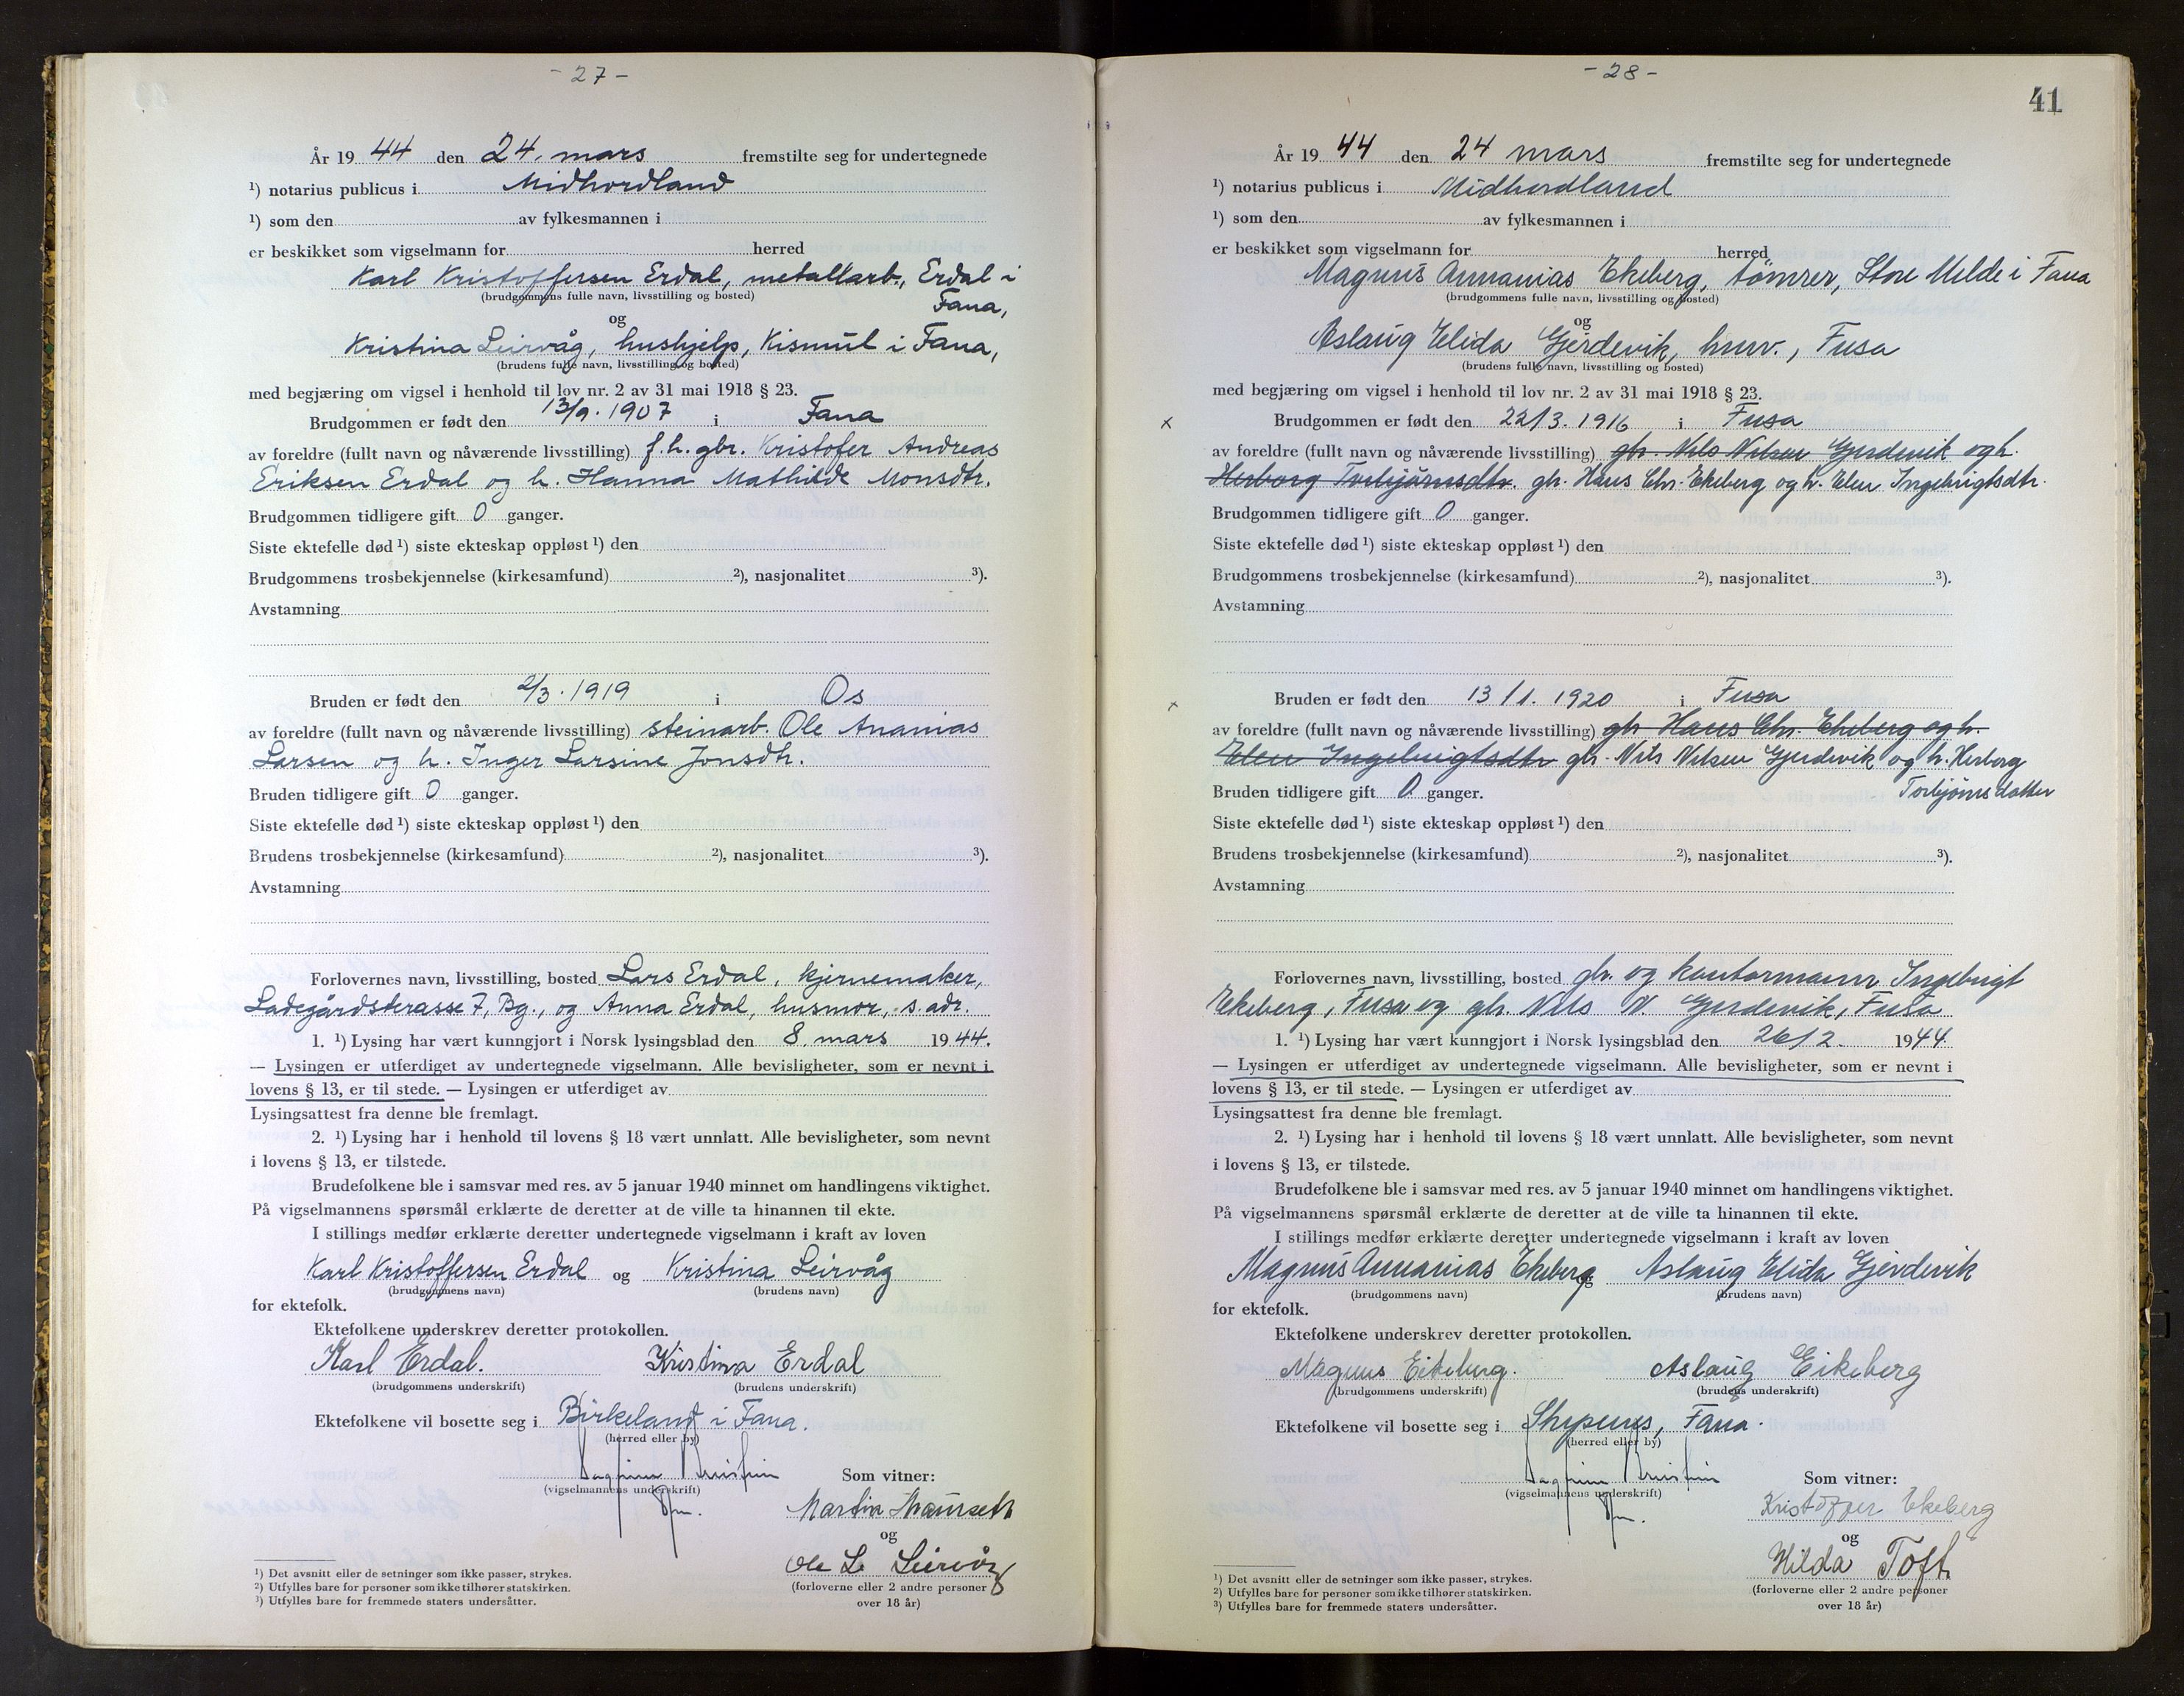 - 27 -
År 19 44 den 24. mars fremstilte seg for undertegnede
¹) notarius publicus i Midhordland
¹) som den av fylkesmannen i
er beskikket som vigselmann for herred
Karl Kristoffersen Erdal, metallarb., Erdal i
(brudgommens fulle navn, livsstilling og bosted)
Fana,
og
Kristina Leirvåg, hushjelp, Kismul i Fana,
(brudens fulle navn, livsstilling og bosted)
med begjæring om vigsel i henhold til lov nr. 2 av 31 mai 1918 § 23.
Brudgommen er født den 13/9. 1907 i Fana
av foreldre (fullt navn og nåværende livsstilling) f.h. gbr. Kristofer Andreas
Eriksen Erdal og h. Hanna Mathilde Monsdtr.
Brudgommen tidligere gift 0 ganger.
Siste ektefelle død ¹) siste ekteskap oppløst ¹) den
Brudgommens trosbekjennelse (kirkesamfund) ²), nasjonalitet ³).
Avstamning
Bruden er født den 2/3. 1919 i Os
av foreldre (fullt navn og nåværende livsstilling) steinarb. Ole Ananias
Larsen og h. Inger Larsine Jonsdtr.
Bruden tidligere gift 0 ganger.
Siste ektefelle død ¹) siste ekteskap oppløst ¹) den
Brudens trosbekjennelse (kirkesamfund) ²), nasjonalitet ³).
Avstamning
Forlovernes navn, livsstilling, bosted Lars Erdal, kjernemaker,
Ladegårdsterasse 7, Bg., og Anna Erdal, husmor, s. adr.
1. ¹) Lysing har vært kunngjort i Norsk lysingsblad den 8. mars 1944.
— Lysingen er utferdiget av undertegnede vigselmann. Alle bevisligheter, som er nevnt i
lovens § 13, er til stede. — Lysingen er utferdiget av
Lysingsattest fra denne ble fremlagt.
2. ¹) Lysing har i henhold til lovens § 18 vært unnlatt. Alle bevisligheter, som nevnt
i lovens § 13, er tilstede.
Brudefolkene ble i samsvar med res. av 5 januar 1940 minnet om handlingens viktighet.
På vigselmannens spørsmål erklærte de deretter at de ville ta hinannen til ekte.
I stillings medfør erklærte deretter undertegnede vigselmann i kraft av loven
Karl Kristoffersen Erdal og Kristina Leirvåg
(brudgommens navn) (brudens navn)
for ektefolk.
Ektefolkene underskrev deretter protokollen.
Karl Erdal. Kristina Erdal
(brudgommens underskrift) (brudens underskrift)
Ektefolkene vil bosette seg i Birkeland i Fana.
(herred eller by)
Som vitner:
(vigselmannens underskrift)
Martin
og
Ole L. Leirvåg
(forloverne eller 2 andre personer
over 18 år)
¹) Det avsnitt eller de setninger som ikke passer, strykes.
²) Utfylles bare for personer som ikke tilhører statskirken.
³) Utfylles bare for fremmede staters undersåtter.
- 28 -
41
År 19 44 den 24 mars fremstilte seg for undertegnede
¹) notarius publicus i Midhordland
¹) som den av fylkesmannen i
er beskikket som vigselmann for herred
Magnus Annanias Ekeberg, tömrer, Store Milde i Fana
(brudgommens fulle navn, livsstilling og bosted)
og
Aslaug Elida Gjerdevik, husv., Fusa
(brudens fulle navn, livsstilling og bosted)
med begjæring om vigsel i henhold til lov nr. 2 av 31 mai 1918 § 23.
x Brudgommen er født den 22/3. 1916 i Fusa
av foreldre (fullt navn og nåværende livsstilling) gbr. Nils Nilsen Gjerdevik og h.
Herborg Torbjörnsdtr. gbr. Hans Chr. Ekeberg og h. Elen Ingebrigtsdtr.
Brudgommen tidligere gift 0 ganger.
Siste ektefelle død ¹) siste ekteskap oppløst ¹) den
Brudgommens trosbekjennelse (kirkesamfund) ²), nasjonalitet ³).
Avstamning
x Bruden er født den 13/1. 1920 i Fusa
av foreldre (fullt navn og nåværende livsstilling) gbr Hans Chr. Ekeberg og h.
Elen Ingebrigtsdtr gbr. Nils Nilsen Gjerdevik og h. Herborg
Torbjörnsdatter
Bruden tidligere gift 0 ganger.
Siste ektefelle død ¹) siste ekteskap oppløst ¹) den
Brudens trosbekjennelse (kirkesamfund) ²), nasjonalitet ³).
Avstamning
Forlovernes navn, livsstilling, bosted gbr. og kontormann Ingebrigt
Ekeberg, Fusa og gbr. Nils N. Gjerdevik, Fusa
1. ¹) Lysing har vært kunngjort i Norsk lysingsblad den 26/2. 1944.
— Lysingen er utferdiget av undertegnede vigselmann. Alle bevisligheter, som er nevnt i
lovens § 13, er til stede. — Lysingen er utferdiget av
Lysingsattest fra denne ble fremlagt.
2. ¹) Lysing har i henhold til lovens § 18 vært unnlatt. Alle bevisligheter, som nevnt
i lovens § 13, er tilstede.
Brudefolkene ble i samsvar med res. av 5 januar 1940 minnet om handlingens viktighet.
På vigselmannens spørsmål erklærte de deretter at de ville ta hinannen til ekte.
I stillings medfør erklærte deretter undertegnede vigselmann i kraft av loven
Magnus Annanias Ekeberg og Aslaug Elida Gjerdevik
(brudgommens navn) (brudens navn)
for ektefolk.
Ektefolkene underskrev deretter protokollen.
Magnus Eikeberg. Aslaug Eikeberg
(brudgommens underskrift) (brudens underskrift)
Ektefolkene vil bosette seg i Fana.
(herred eller by)
Som vitner:
(vigselmannens underskrift)
Kristoffer Ekeberg
og
Hilda Toft.
(forloverne eller 2 andre personer
over 18 år)
¹) Det avsnitt eller de setninger som ikke passer, strykes.
²) Utfylles bare for personer som ikke tilhører statskirken.
³) Utfylles bare for fremmede staters undersåtter.